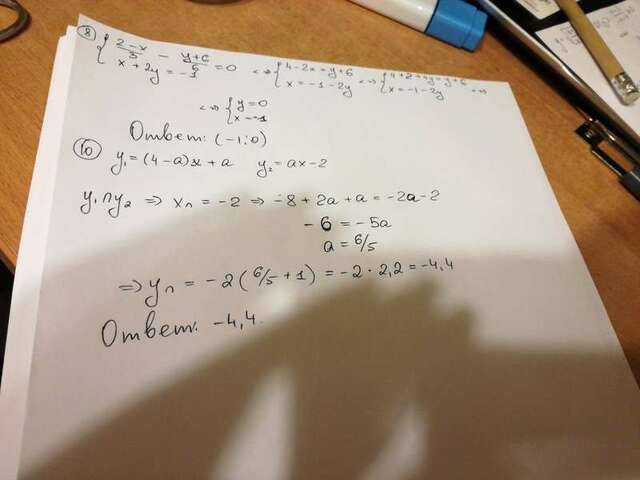 ⑧ { (2-x)/3 - (y+6)/6 = 0 <=> { 4-2x=y+6 <=> { 4+2+4y=y+6 <=>
x+2y=-1 x=-1-2y x=-1-2y
<=> { y=0
x=-1
Ответ: (-1;0)
⑩ y₁=(4-a)x+a y₂=ax-2
y₁∩y₂ => x∩ = -2 => -8+2a+a = -2a-2
-6 = -5a
a = 6/5
=> y∩ = -2(6/5+1) = -2·2,2 = -4,4
Ответ: -4,4.